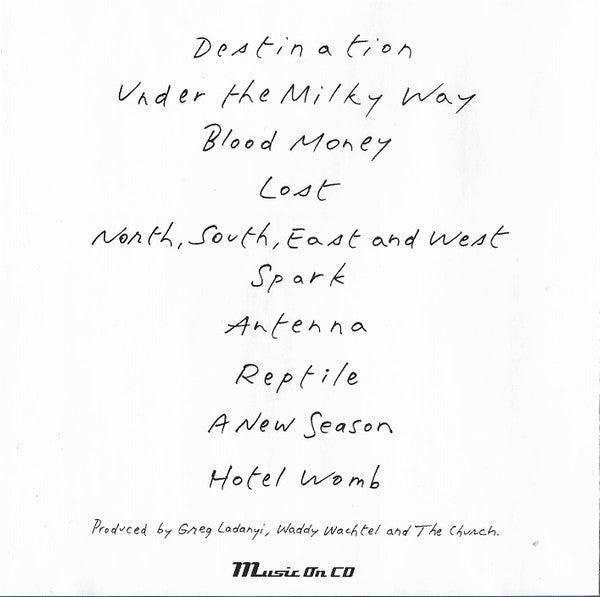 Destination
Under the Milky Way
Blood Money
Lost
North, South, East and West
Spark
Antenna
Reptile
A New Season
Hotel Womb
Produced by Greg Ladanyi, Waddy Wachtel and The Church.
Music On CD